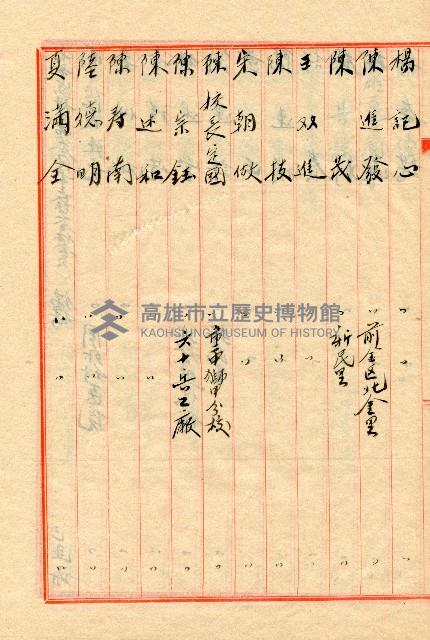 楊記心 〃 〃
陳進發 〃 前金区北金里 〃
陳茂 〃 新民里 〃
王双進 〃 〃 〃
陳技 〃 〃 〃
宋朝 〃 〃 〃
陳校長定國 市中獅甲分校 〃
陳宗鈺 六十兵工廠 〃
陳述和 〃 〃 〃
陳寿南 〃 〃 〃
陸德明 〃 〃 〃
夏滿全 〃 〃 〃
高雄市立歷史博物館
KAOHSIUNG MUSEUM OF HISTORY